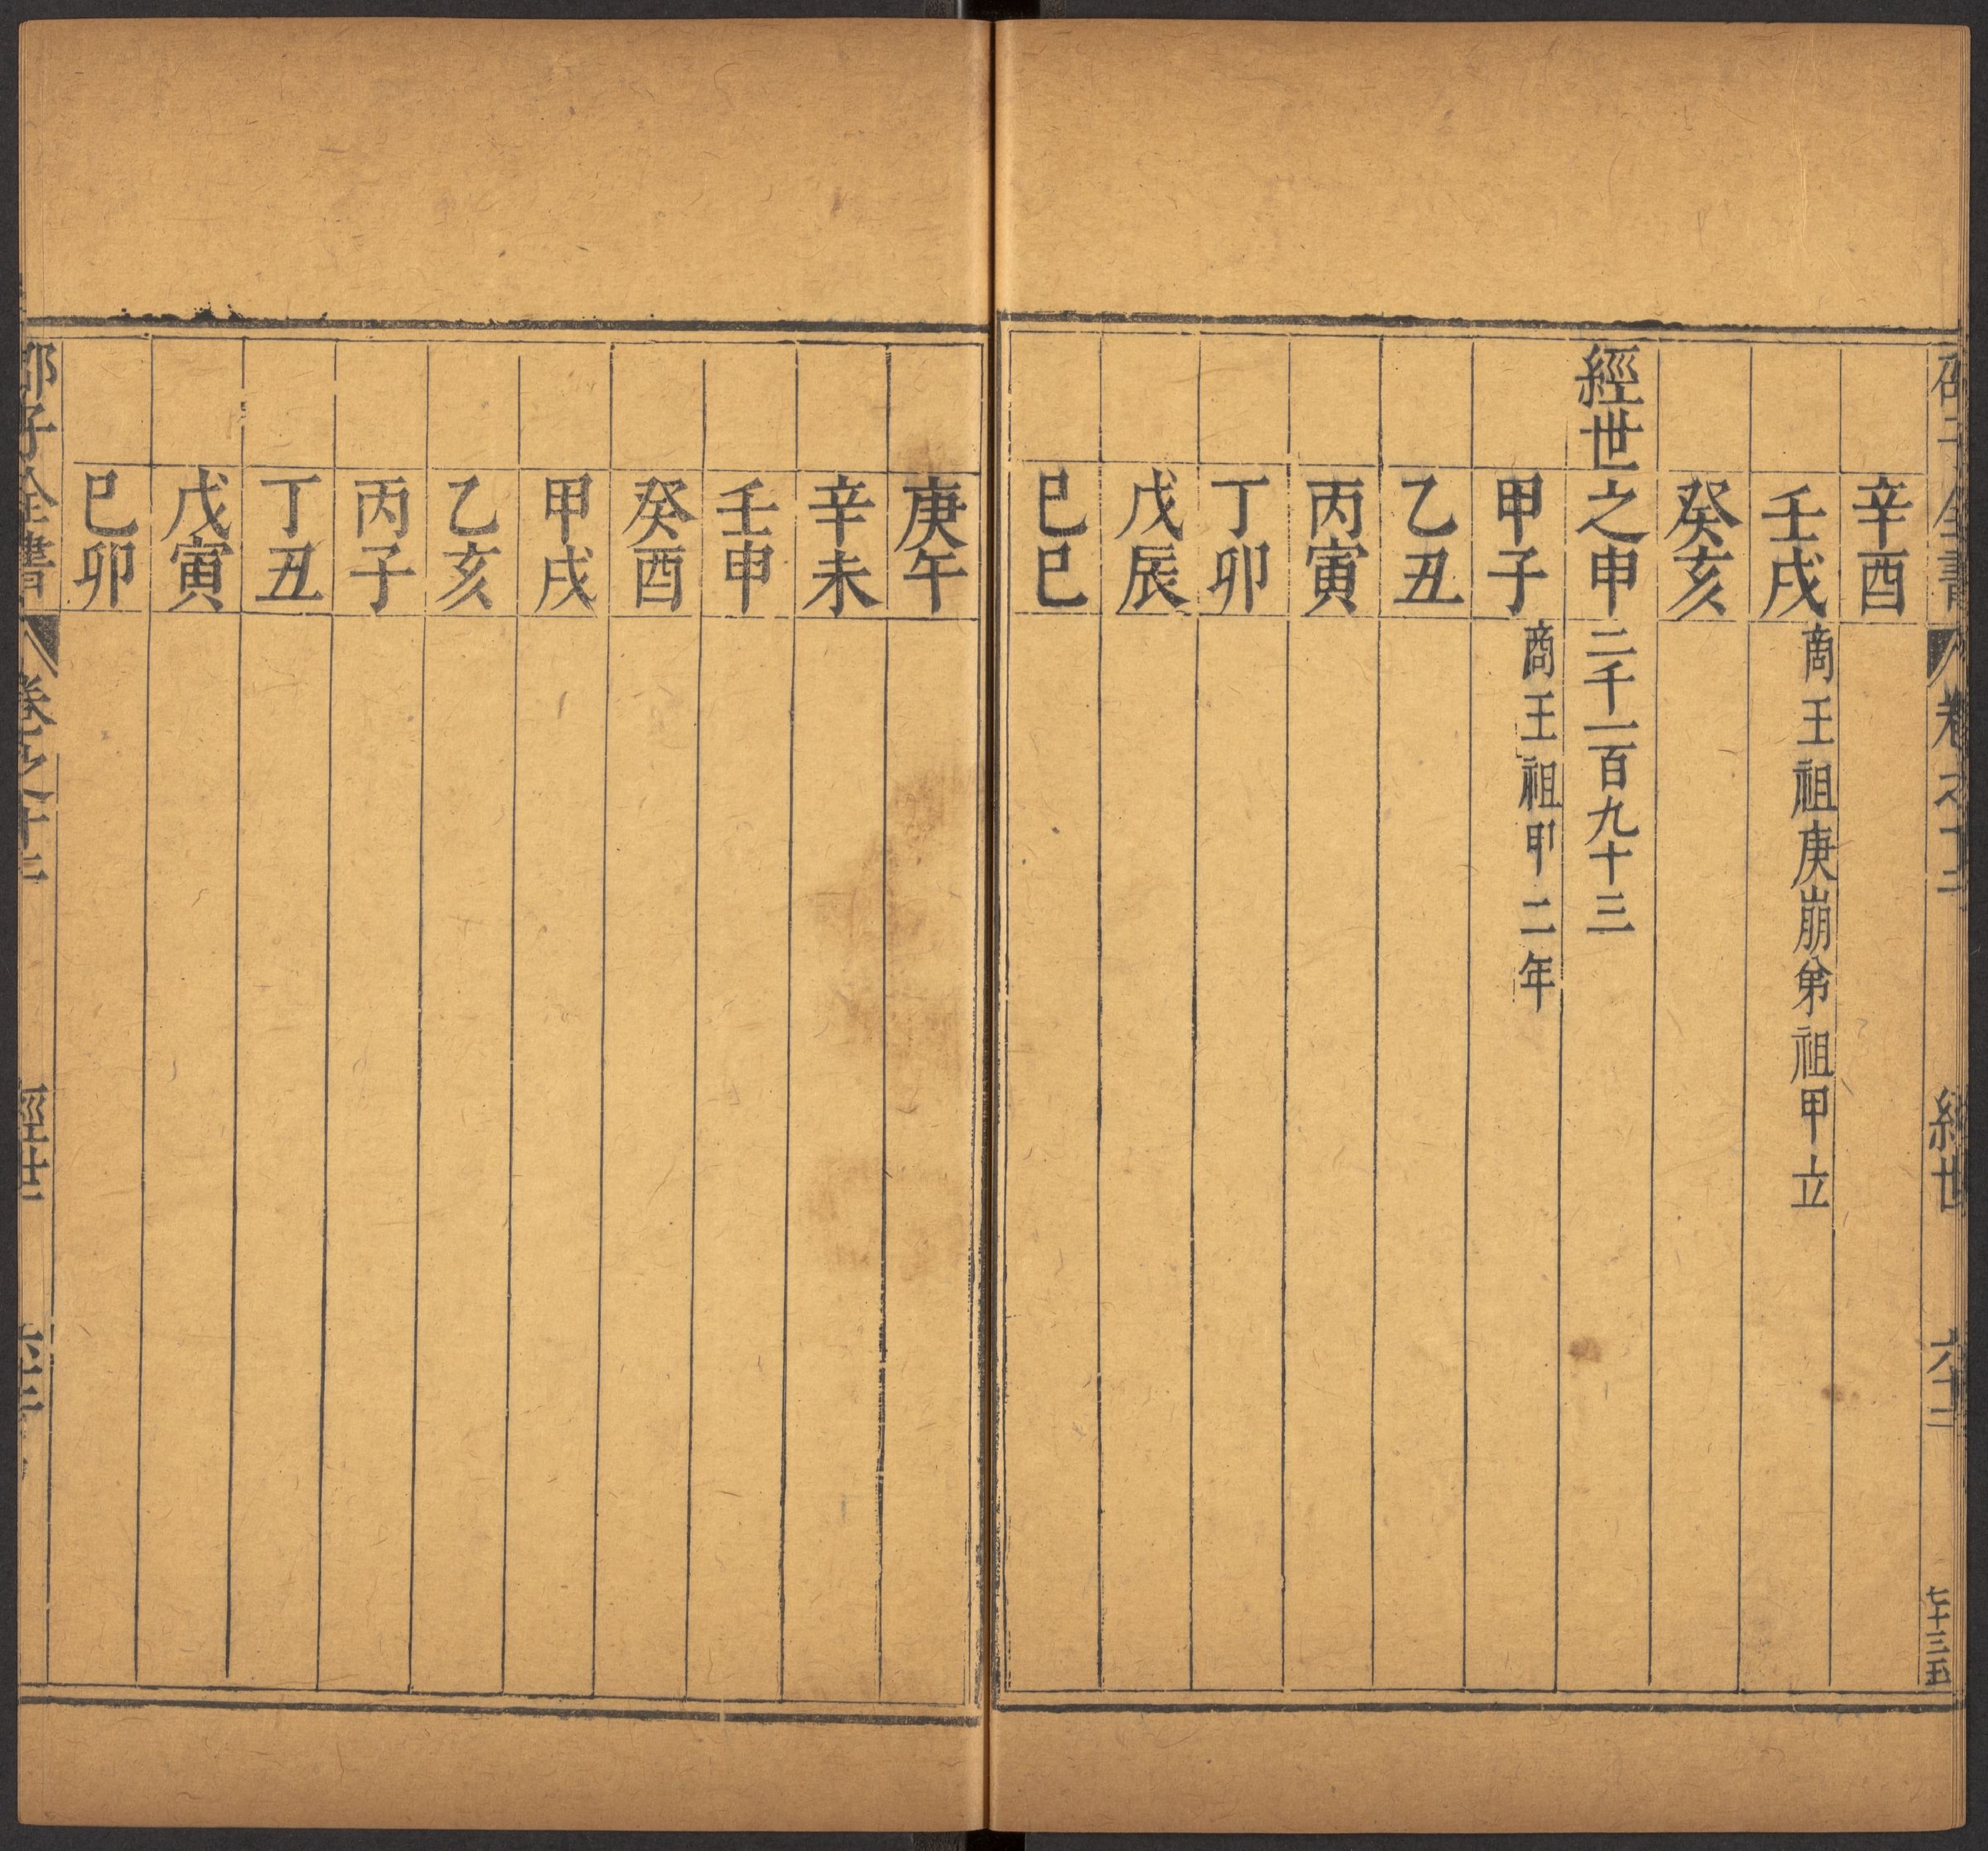 辛酉
壬戌 商王祖庚崩弟祖甲立
癸亥
經世之申 二千一百九十三
甲子 商王祖甲二年
乙丑
丙寅
丁卯
戊辰
巳巳
庚午
辛未
壬申
癸酉
甲戌
乙亥
丙子
丁丑
戊寅
巳卯
邵子全書 卷之十二 經世